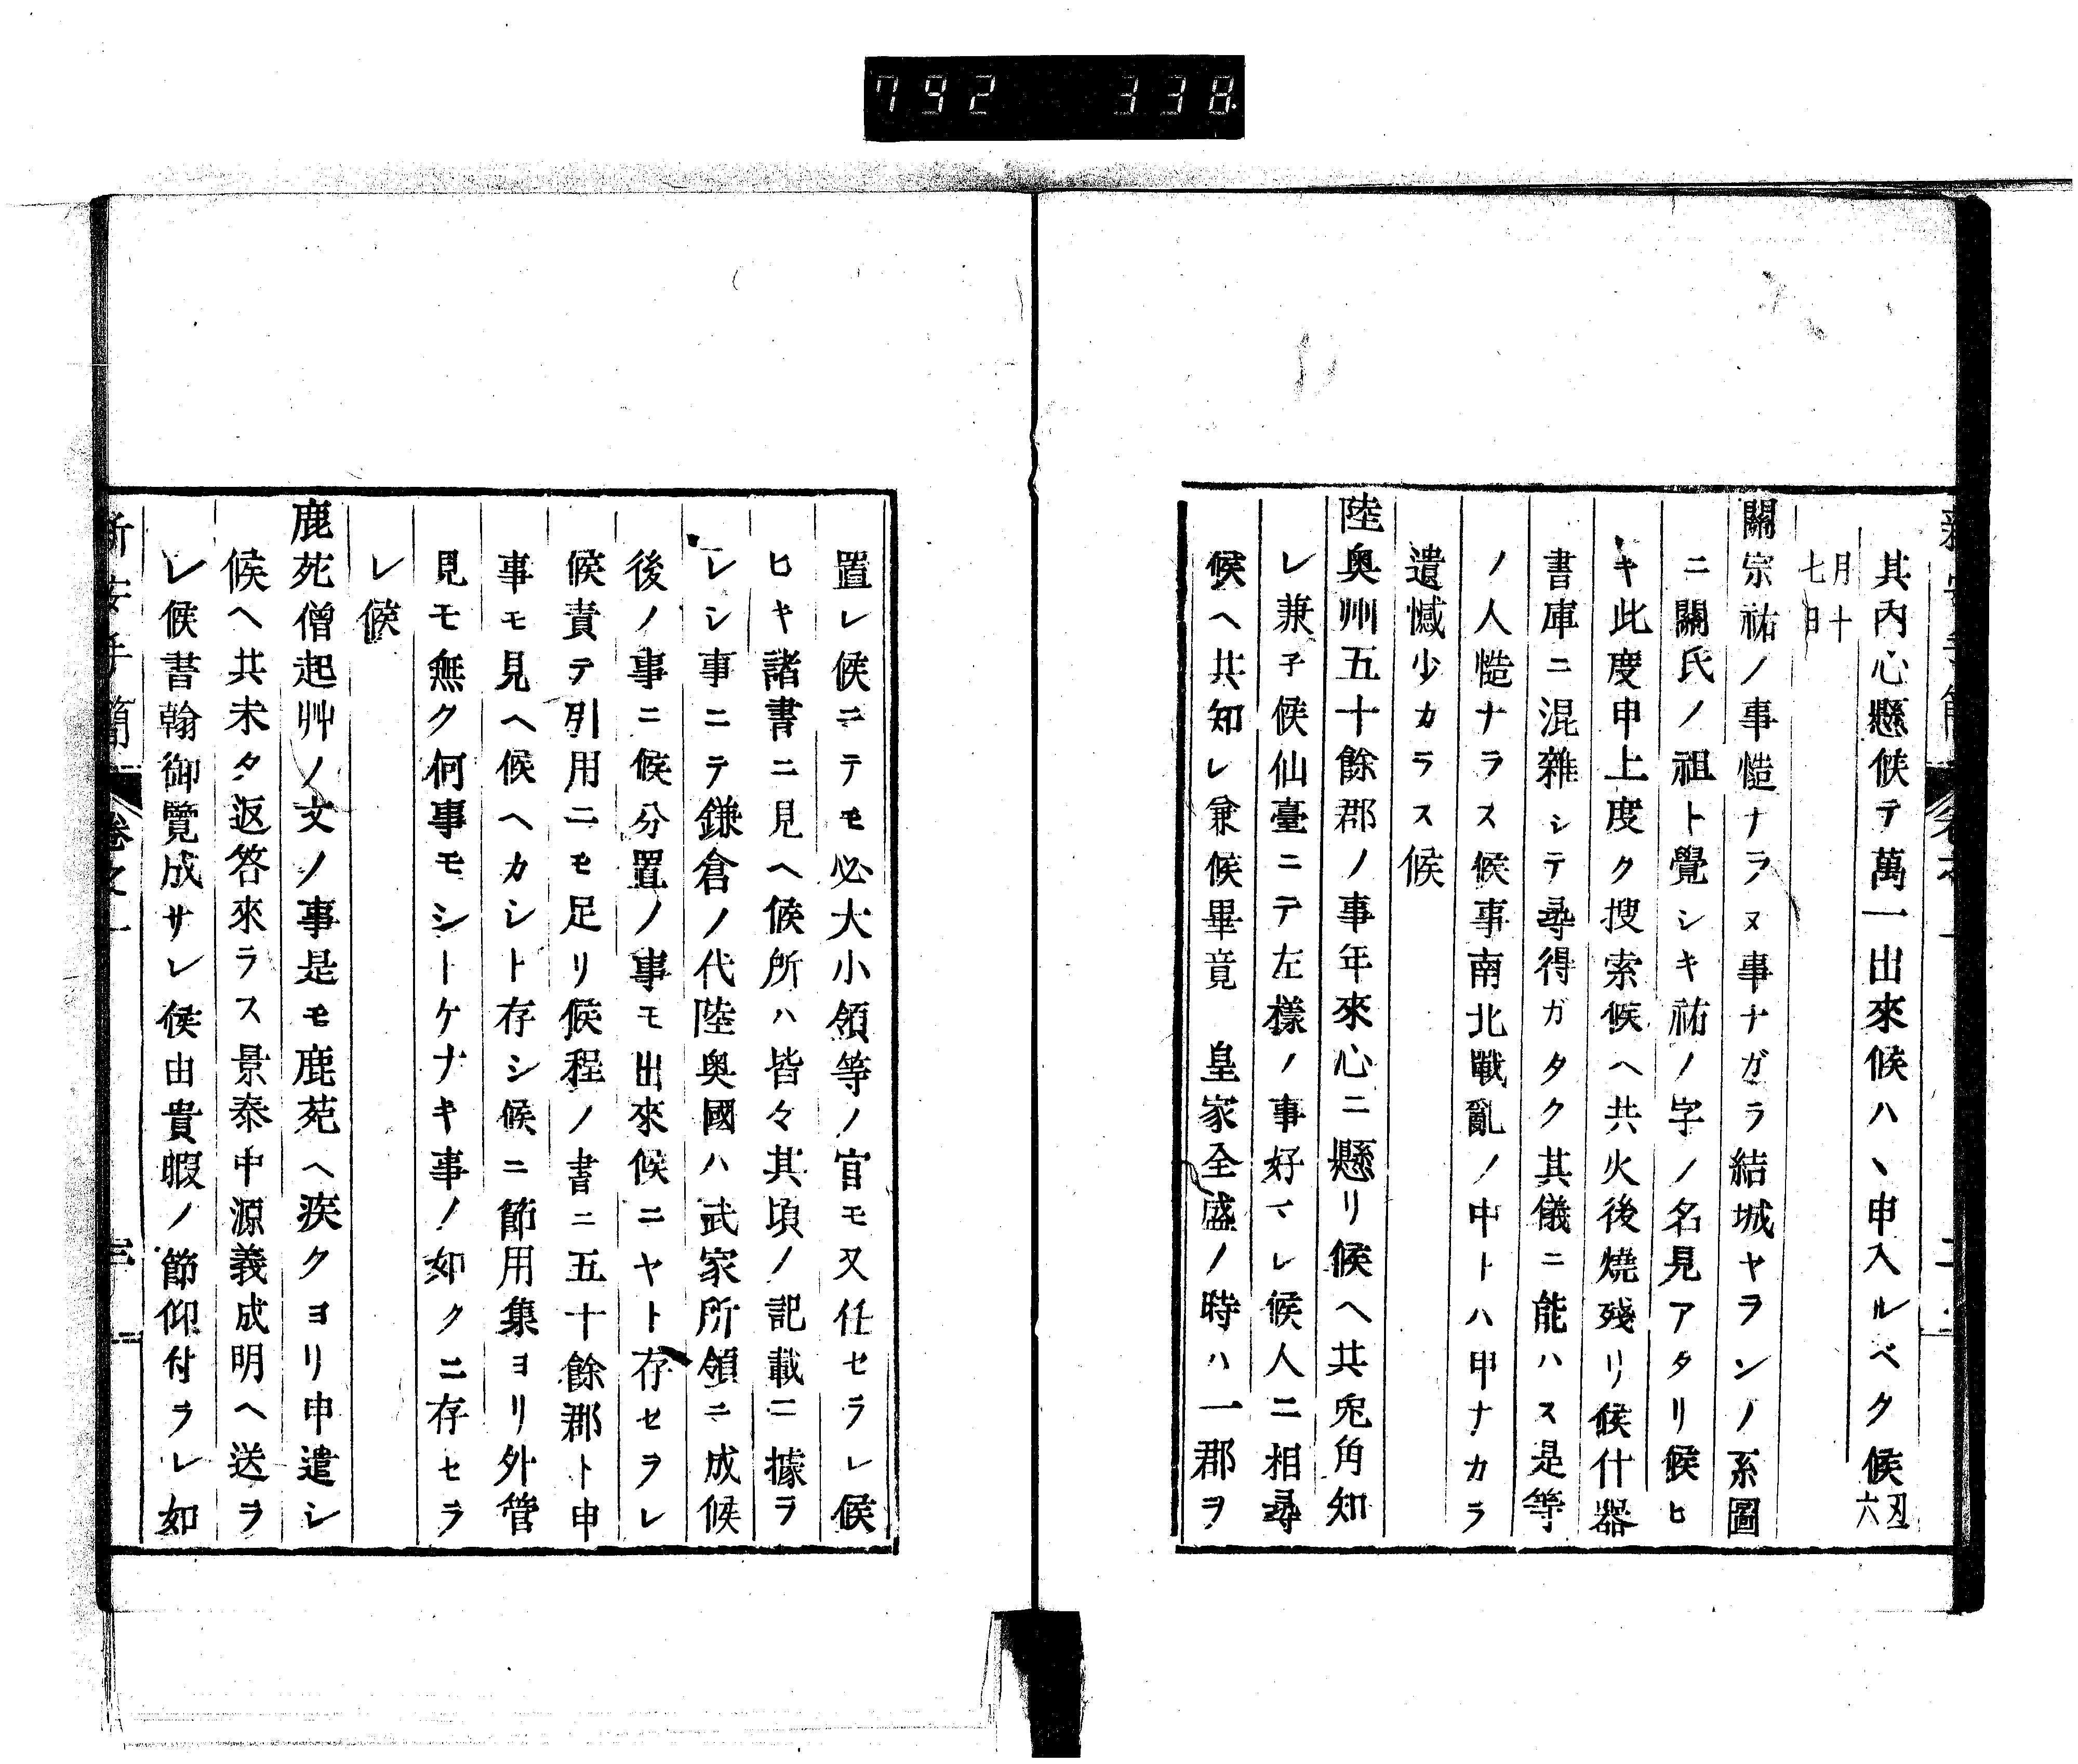 792 338
其内心懸候テ萬一出來候ハヽ申入ルベク候 六
月十七日
關宗祐ノ事慥ナラヌ事ナガラ結城ヤランノ系圖
ニ關氏ノ祖ト覺シキ祐ノ字ノ名見アタリ候ヒ
キ此度申上度ク搜索候ヘ共火後燒殘リ候什器
書庫ニ混雜シテ尋得ガタク其儀ニ能ハス是等
ノ人慥ナラス候事南北戰亂ノ中トハ申ナカラ
遺憾少カラス候
陸奥州五十餘郡ノ事年來心ニ懸リ候ヘ共兎角知
レ兼子候仙臺ニテ左樣ノ事好マレ候人ニ相尋
候ヘ共知レ兼候畢竟 皇家全盛ノ時ハ一郡ヲ
置レ候ニテモ必大小領等ノ官モ又任セラレ候
ヒキ諸書ニ見ヘ候所ハ皆々其頃ノ記載ニ據ラ
レシ事ニテ鎌倉ノ代陸奥國ハ武家所領ニ成候
後ノ事ニ候分置ノ事モ出來候ニヤト存セラレ
候責テ引用ニモ足リ候程ノ書ニ五十餘郡ト申
事モ見ヘ候ヘカシト存シ候ニ節用集ヨリ外管
見モ無ク何事モシトケナキ事ノ如クニ存セラ
レ候
鹿苑僧起艸ノ文ノ事是モ鹿苑ヘ疾クヨリ申遣シ
候ヘ共未タ返答來ラス景泰中源義成明ヘ送ラ
レ候書翰御覽成サレ候由貴暇ノ節仰付ラレ如
新安手簡 卷之一